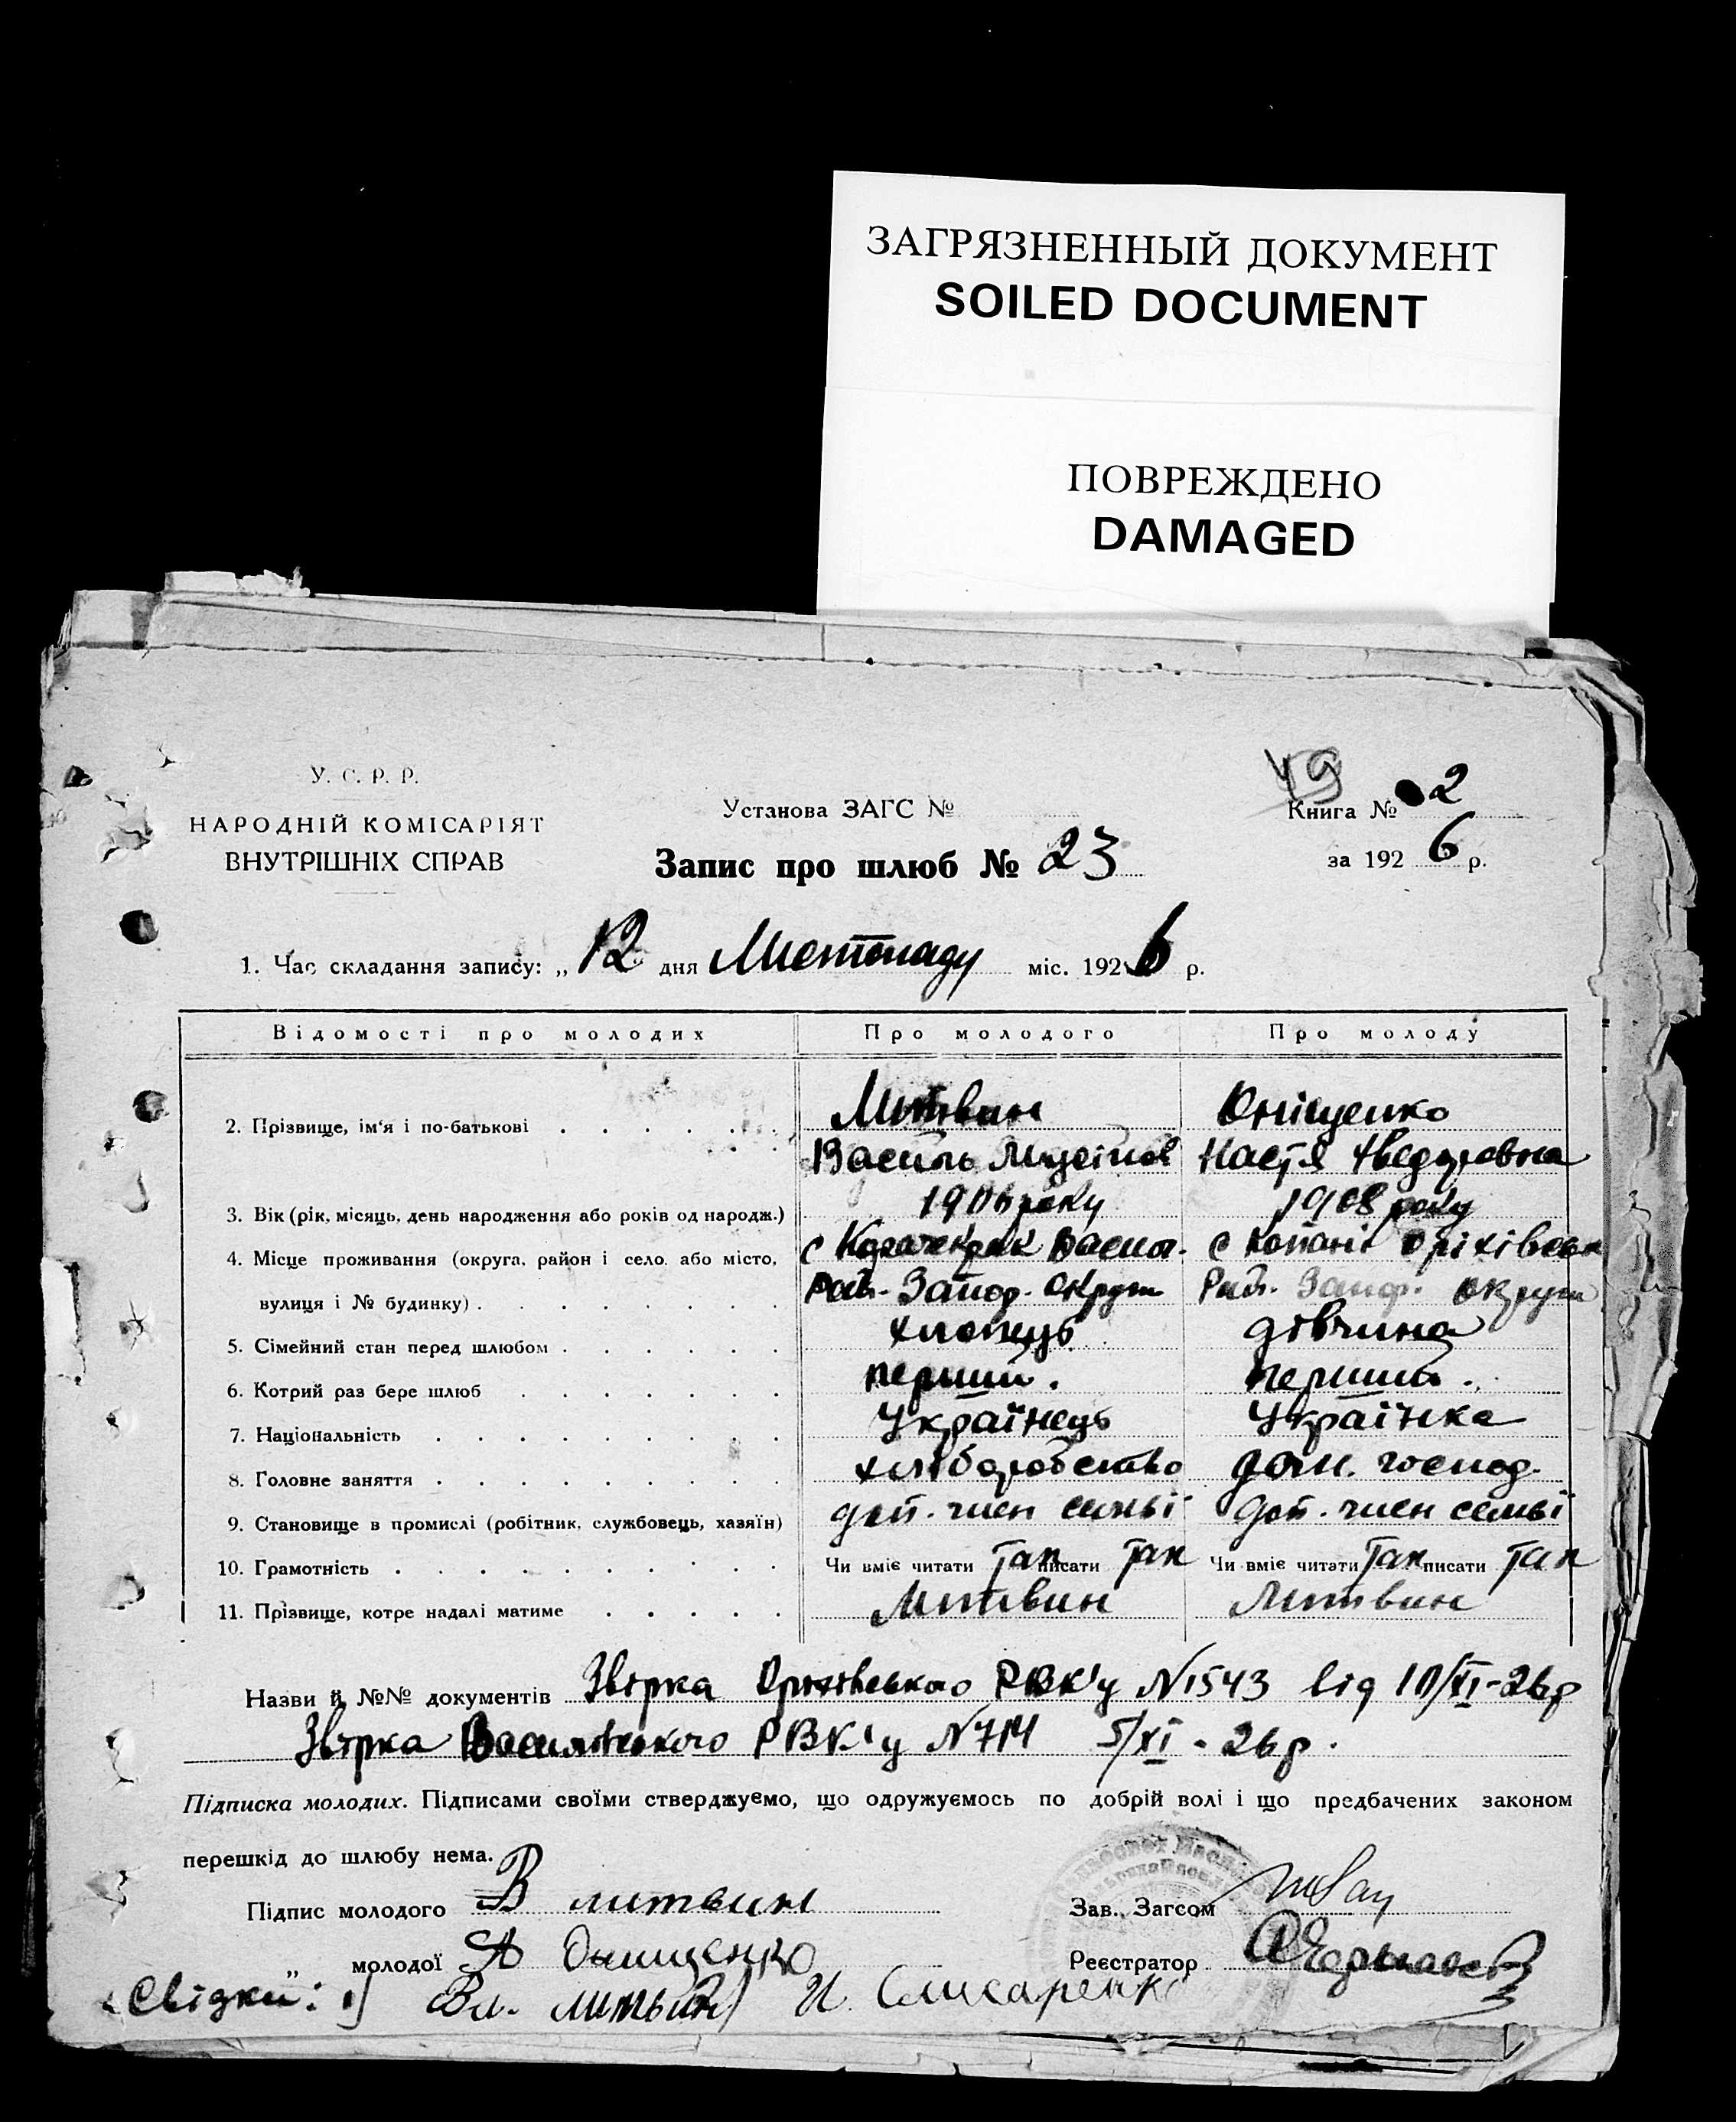 ЗАГРЯЗНЕННЫЙ ДОКУМЕНТ
SOILED DOCUMENT
ПОВРЕЖДЕНО
DAMAGED
У. С. Р. Р.
НАРОДНІЙ КОМІСАРІЯТ
ВНУТРІШНІХ СПРАВ
Установа ЗАГС №
Запис про шлюб № 23
49
Книга № 2
за 1926 р.
1. Час складання запису: „ 12 дня Листопаду міс. 1926 р.
Відомості про молодих Про молодого Про молоду
2. Прізвище, ім'я і по-батькові Литвин Оніщенко
Василь Настя
3. Вік (рік, місяць, день народження або років од народж.) 1906 року 1908 року
4. Місце проживання (округа, район і село або місто, с Васил. с Копані Оріхівськ
вулиця і № будинку) Рай. Запор. Округи Рай. Запор. округи
5. Сімейний стан перед шлюбом хлопець дівчина
6. Котрий раз бере шлюб перший. перший.
7. Національність Українець Українка
8. Головне заняття хліборобство дом. господ.
9. Становище в промислі (робітник, службовець, хазяїн) доп. член семьї доп. член семьї
10. Грамотність Чи вміє читати Так писати Так Чи вміє читати Так писати Так
11. Прізвище, котре надалі матиме Литвин Литвин
Назви й №№ документів Звірка Оріхівського РВК'у N1543 від 10/XI-26р
Звірка Василівського РВК'у 5/XI - 26р.
Підписка молодих. Підписами своїми стверджуємо, що одружуємось по добрій волі і що предбачених законом
перешкід до шлюбу нема.
Підпис молодого В литвин Зав. Загсом
„ молодої А Онищенко Реєстратор
Свідки: 1) Вл. литвин) И. Слисаренко